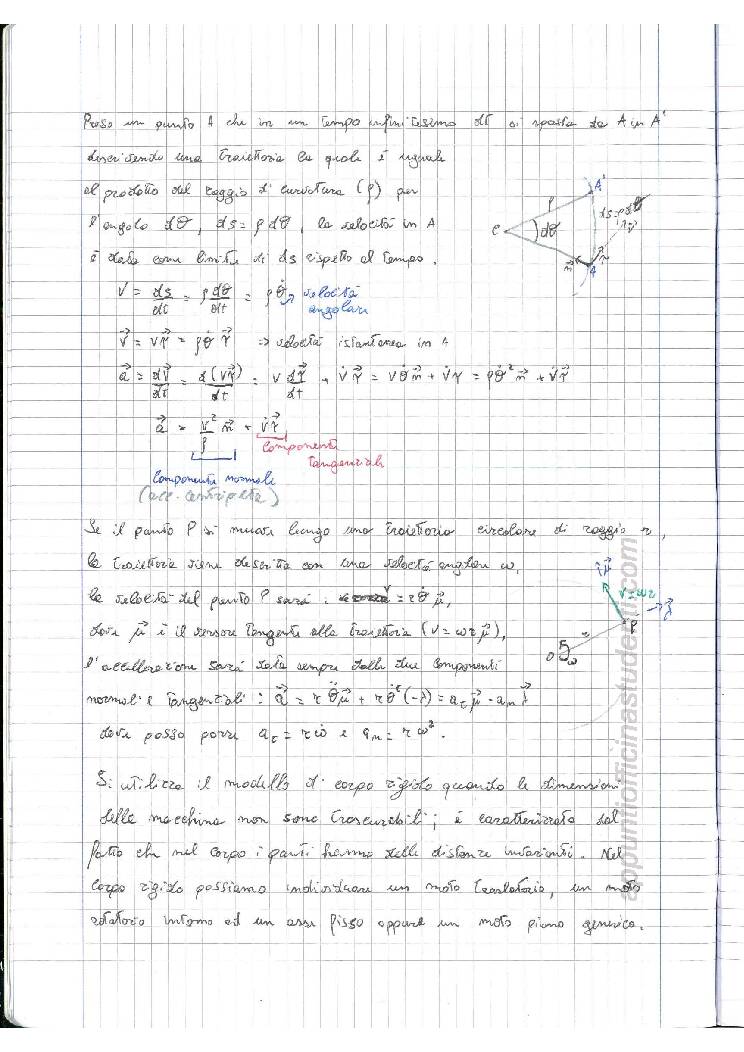 Preso un punto A che in un tempo infinitesimo dt si sposta da A in A'
descrivendo una traiettoria la quale è uguale
al prodotto del raggio di curvatura (ρ) per
l'angolo dθ, ds = ρ dθ, la velocità in A
è data come limite di ds rispetto al tempo.
C ρ dθ A' ds = ρdθ A n⃗ τ⃗ v⃗
V = ds/dt = ρ dθ/dt = ρ θ̇ → velocità angolare
v⃗ = vτ⃗ = ρθ̇ τ⃗ ⇒ velocità istantanea in A
a⃗ = dv⃗/dt = d(vτ⃗)/dt = v dτ⃗/dt + v̇ τ⃗ = vθ̇ n⃗ + v̇ τ = ρθ̇² n⃗ + v̇ τ⃗
a⃗ = v²/ρ n⃗ + v̇τ⃗
componente tangenziale
componente normale
(acc. centripeta)
Se il punto P si muove lungo una traiettoria circolare di raggio r,
la traiettoria viene descritta con una velocità angolare ω,
la velocità del punto P sarà: v = r θ̇ μ⃗,
dove μ⃗ è il versore tangente alla traiettoria (v = ωr μ⃗),
l'accellerazione sarà data sempre dalle due componenti
normali e tangenziali: a⃗ = r θ̈ μ⃗ + r θ̇² (-λ) = aₜ μ⃗ - aₙ λ⃗
dove posso porre aₜ = r ω̇ e aₙ = r ω².
μ⃗ v=ωr P λ⃗ r O ω
Si utilizza il modello di corpo rigido quando le dimensioni
della macchina non sono trascurabili; è caratterizzato dal
fatto che nel corpo i punti hanno delle distanze invarianti. Nel
corpo rigido possiamo individuare un moto traslatorio, un moto
rotatorio intorno ad un asse fisso oppure un moto piano generico.
appuntiofficinastudenti.com